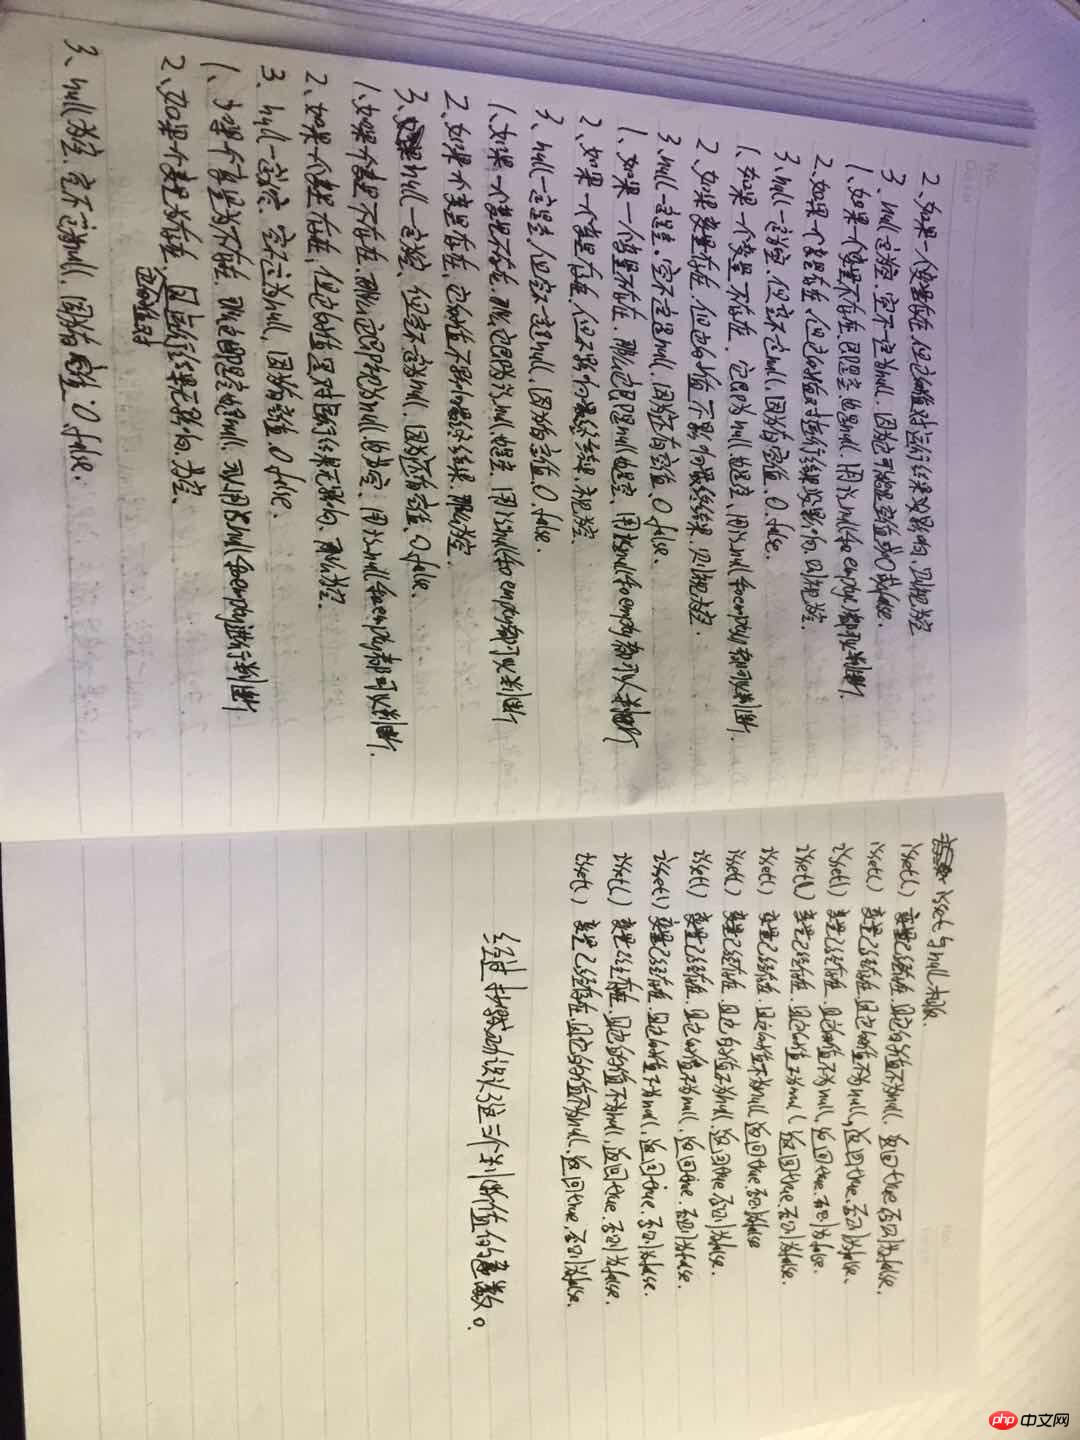 2、如果一个变量存在,但它的值对运行结果没影响,则视为空
3、null一定为空,空不一定为null,因为它可能是空值或0或false.
1、如果一个变量不存在,即是空也是null,用is_null和empty都可以判断.
2、如果一个变量存在,但它的值对运行结果没影响,则视为空.
3、null一定为空,但空不一定null,因为有空值、0、false.
1、如果一个变量不存在,它即为null也是空,用is_null和empty都可以判断.
2、如果变量存在,但它的值不影响最终结果,则视为空.
3、null一定是空,空不一定是null,因为还有空值、0、false.
1、如果一个变量不存在,那么它即是null也是空、用is_null和empty都可以判断
2、如果一个变量存在,但不影响最终结果,视为空.
3、null一定是空,但空不一定null,因为有空值、0、false.
1、如果一个变量不存在,那么它即为null也是空,用is_null和empty都可以判断
2、如果一个变量存在,它的值不影响最终结果,那么为空.
3、null一定为空,但空不一定为null,因为还有空值、0、false.
1、如果一个变量不存在,那么它即为null也为空、用is_null和empty都可以判断.
2、如果一个变量存在,但它的值是对运行结果无影响,那么为空.
3、null一定为空,空不一定为null,因为有空值、0、false.
1、如果一个变量为不存在,那它即是空也是null,可用is_null和empty进行判断
2、如果一个变量为存在,且它的值对运行结果无影响,为空.
3、null为空,空不一定为null,因为有空值、0、false.
isset与null
isset()变量已经存在,且它的值不为null,返回true,否则为false.
isset()变量已经存在,且它的值不为null,返回true,否则为false.
isset()变量已经存在,且它的值不为null,返回true,否则为false.
isset()变量已经存在,且它的值不为null,返回true,否则为false.
isset()变量已经存在,且它的值不为null返回true,否则为false
isset()变量已经存在,且它的值不为null,返回true,否则为false.
isset()变量已经存在,且它的值不为null,返回true,否则为false.
isset()变量已经存在,且它的值不为null,返回true,否则为false.
isset()变量已经存在,且它的值不为null,返回true,否则为false.
isset()变量已经存在,且它的值不为null,返回true,否则为false.
经过抄写成功认识这三个判断值的函数。
php中文网